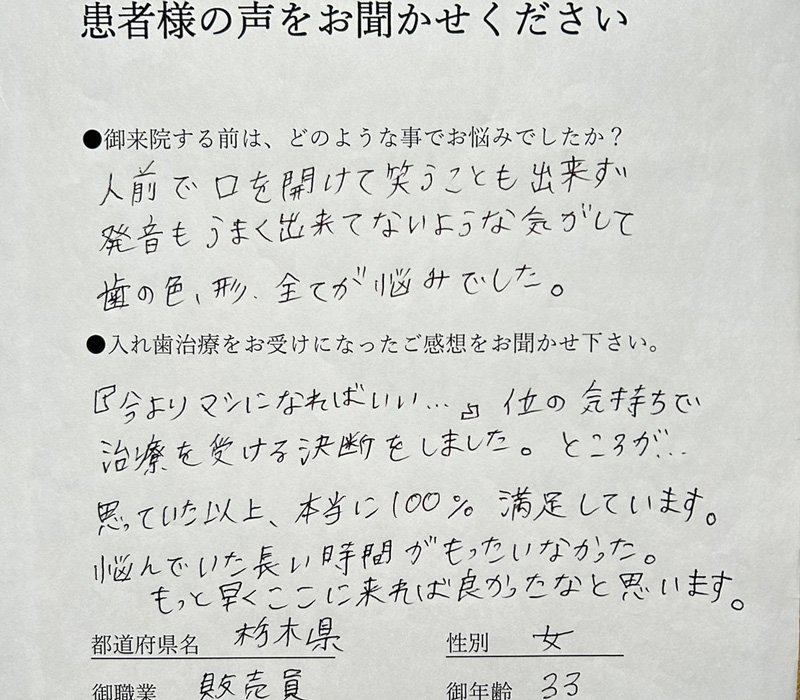 患者様の声をお聞かせください
●御来院する前は、どのような事でお悩みでしたか？
人前で口を開けて笑うことも出来ず
発音もうまく出来てないような気がして
歯の色、形、全てが悩みでした。
●入れ歯治療をお受けになったご感想をお聞かせ下さい。
『今よりマシになればいい…』位の気持ちで
治療を受ける決断をしました。ところが…
思っていた以上、本当に100％満足しています。
悩んでいた長い時間がもったいなかった。
もっと早くここに来れば良かったなと思います。
都道府県名 栃木県 性別 女
御職業 販売員 御年齢 33